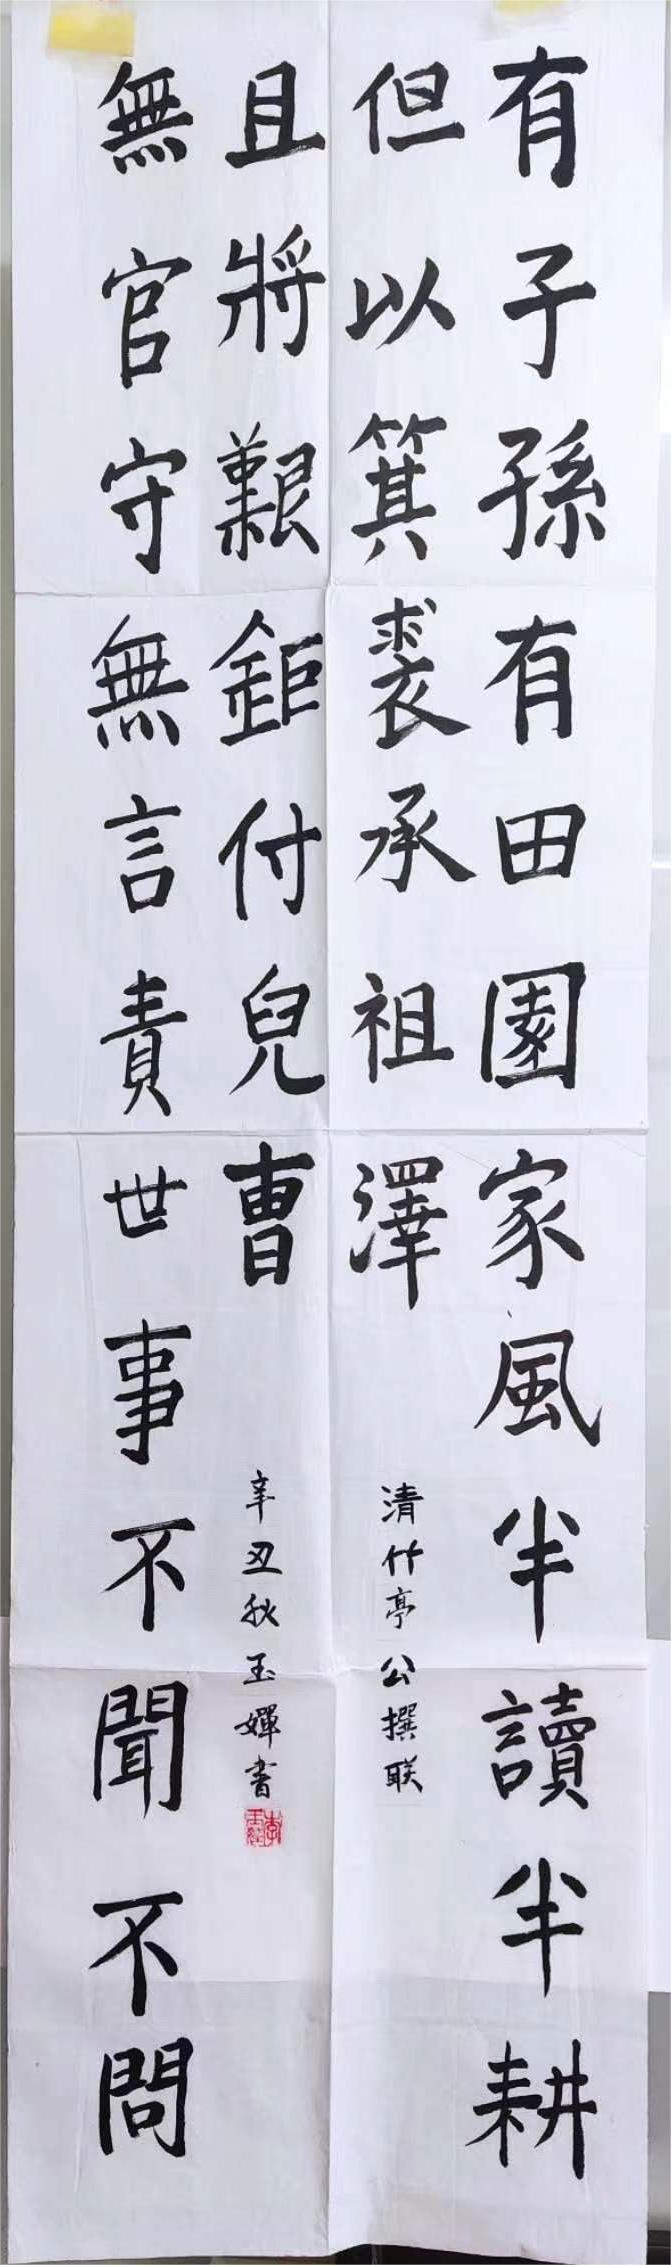 有子孫有田園家風半讀半耕
但以箕裘承祖澤
清竹亭公撰联
無官守無言責世事不聞不問
且將艱鉅付兒曹
辛丑秋玉嬋書